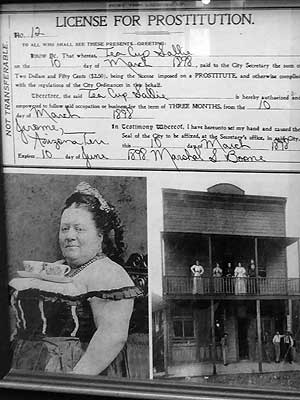 LICENSE FOR PROSTITUTION.
No. 12
TO ALL WHO SHALL SEE THESE PRESENTS—GREETING:
KNOW YE, That whereas, Tea Cup Sallie
on the 10 day of March 1898, paid to the City Secretary the sum of
Two Dollars and Fifty Cents ($2.50), being the license imposed on a PROSTITUTE, and otherwise complied
with the regulations of the City Ordinances in this behalf.
Therefore, the said Tea Cup Sallie is hereby authorized and
empowered to follow said occupation or business for the term of THREE MONTHS, from the 10
day of March 1898
Jerome, In Testimony Whereof, I have hereunto set my hand and caused the
Arizona Terr Seal of the CITY to be affixed, at the Secretary's office, in said City,
this 10 day of March 1898
Expires 10 day of June 1898 Marshal S Boone
NOT TRANSFERABLE.